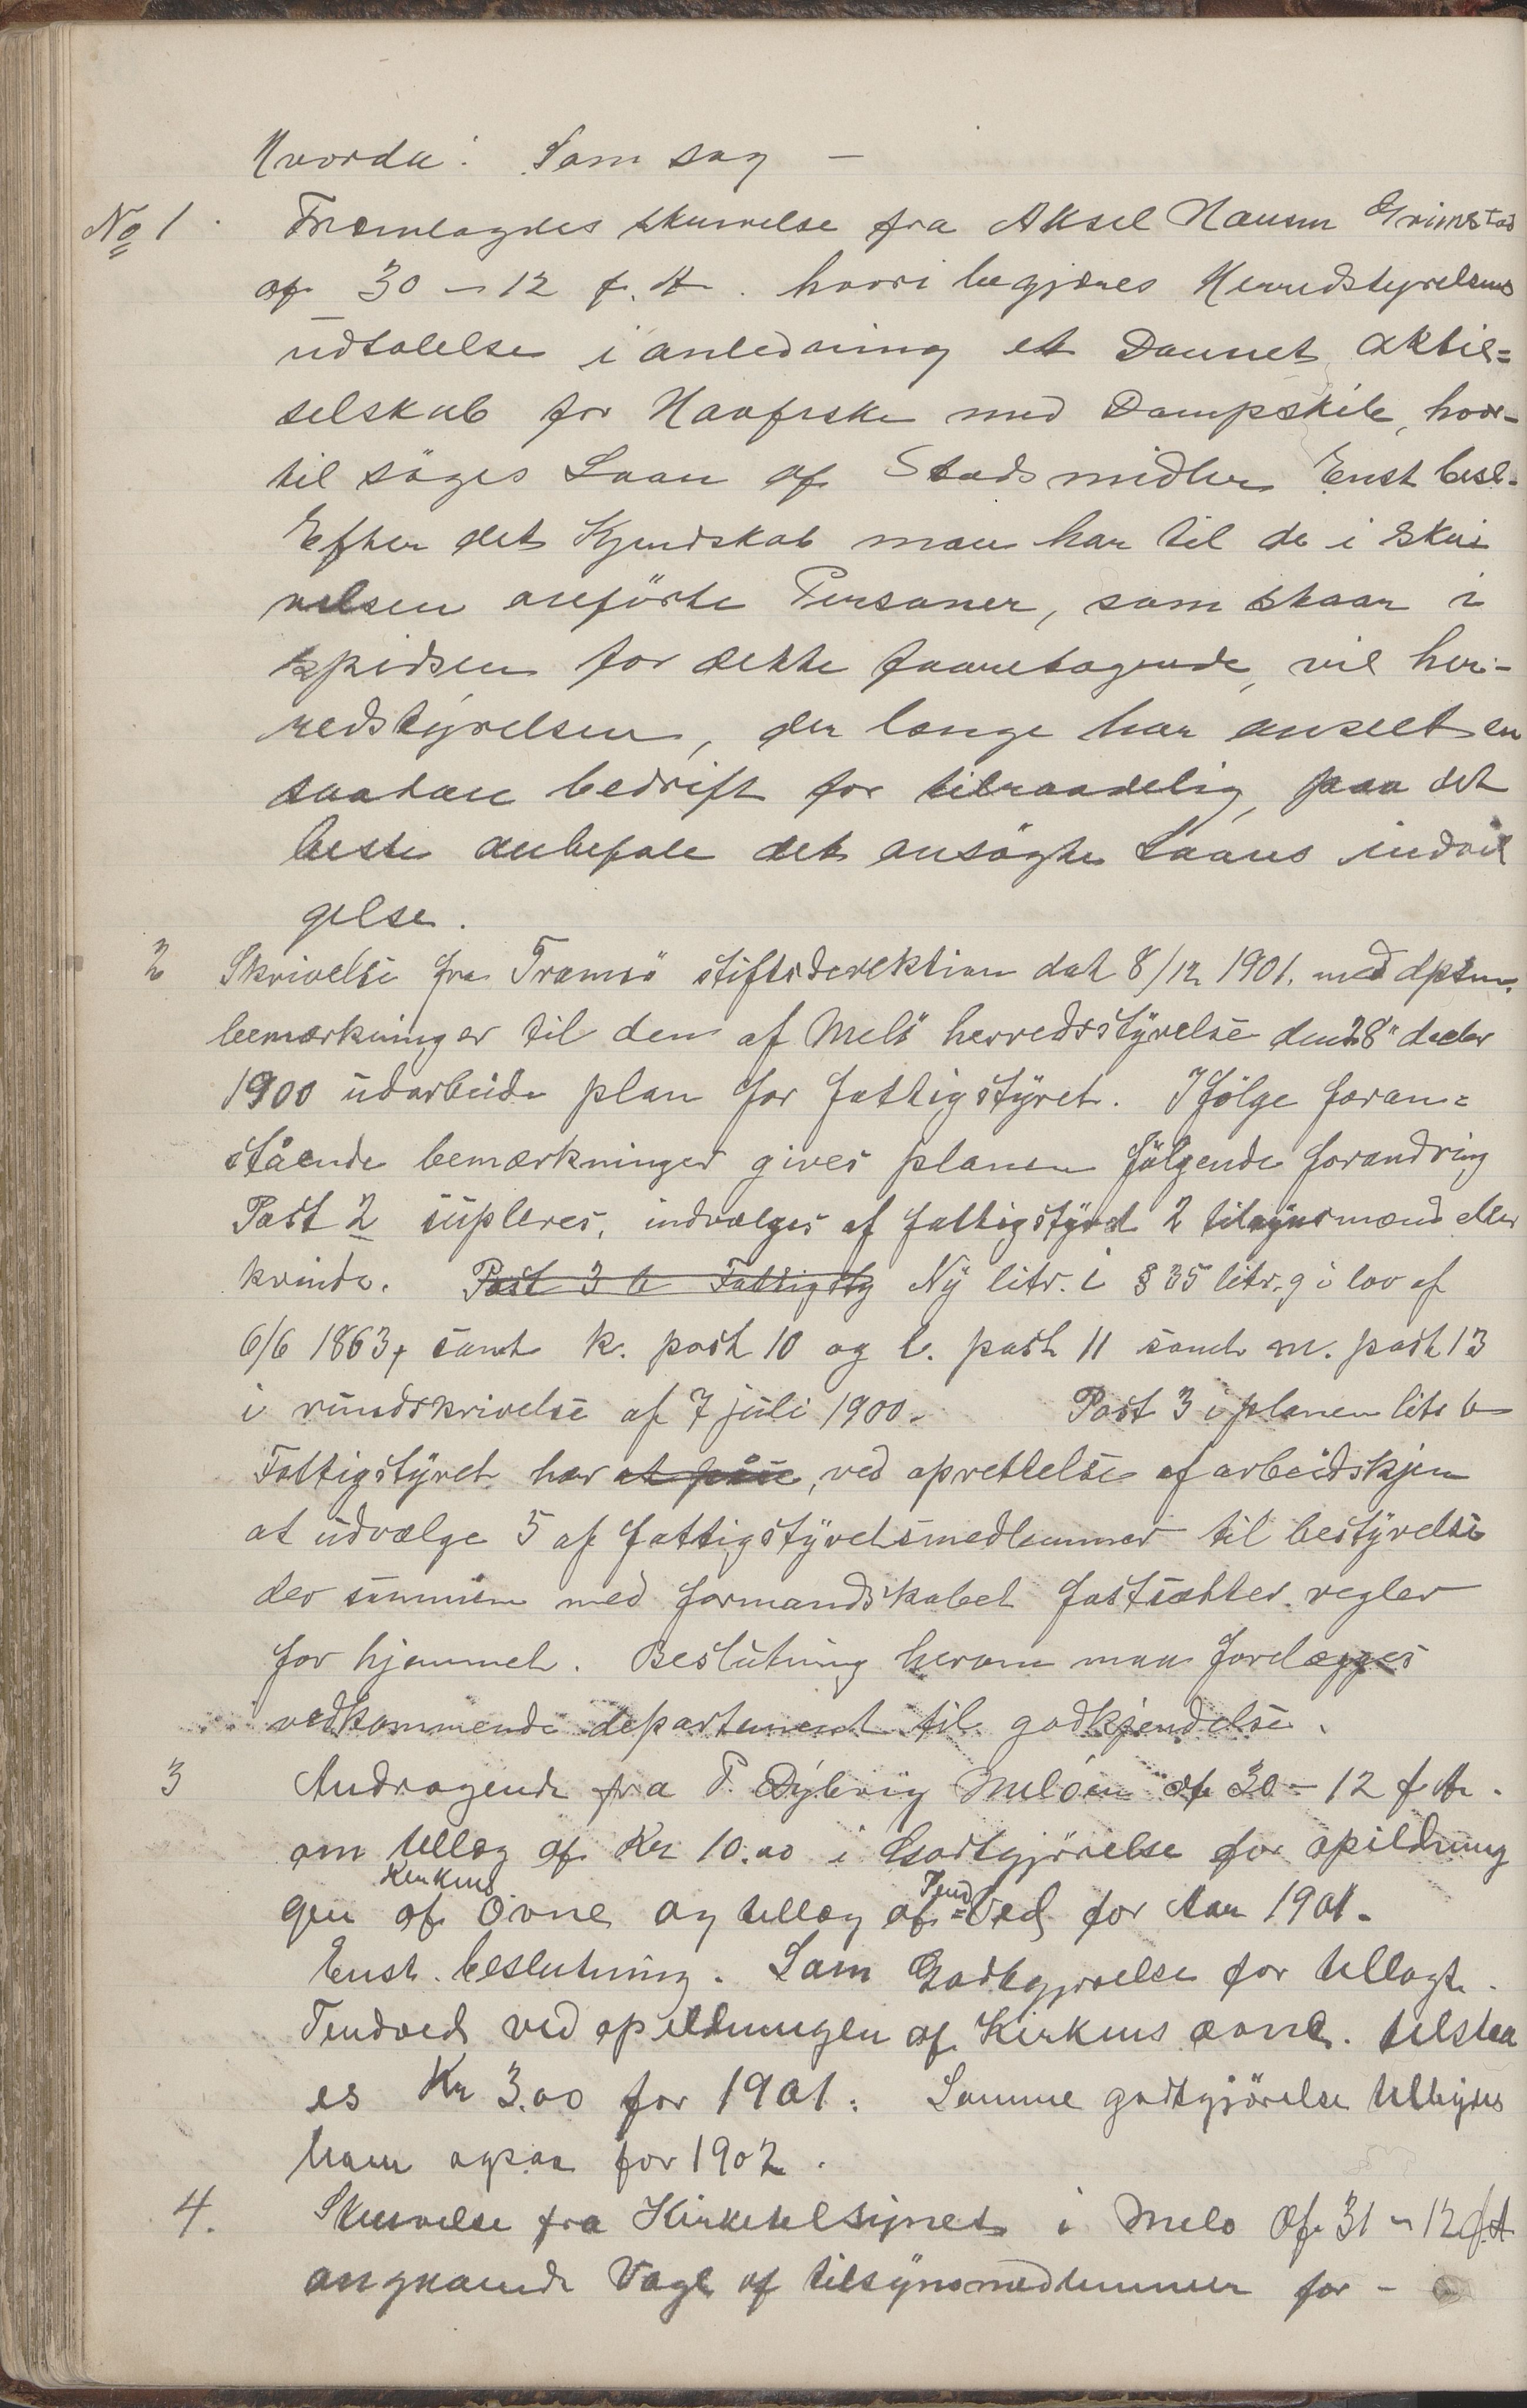 Hvorda: Som sag –
No 1. Fremlagdes skrivelse fra Aksel Hansen Grimstad
af 30 – 12 f. A. hvori begjæres Herredstyrelsens
udtalelse i anledning et Dannet Aktie=
selskab for Havfiske med Dampskib, hvor-
til søges Laan af Stadsmidler Enst besl.
Efter det Kjendskab man har til de i Skri
velsen anførte Personer, som staar i
spidsen for dette foretagende, vil her-
redstyrelsen, der længe har anseet en
saadan bedrift for tilraadelig, paa det
beste anbefale det ansøgte Laans indvil
gelse.
2 Skrivelse fra Tromsö stiftsdirektion dat 8/12 1901. med
bemærkninger til den af Melö herredsstÿrelse den 28" decbr
1900 udarbeide plan for fattigstÿret. Ifölge foran=
stående bemærkninger gives planen fölgende forandring
Post 2 supleres, indvælges af fattigstÿret 2 tilsÿnsmænd eller
kvinde. Post 3 b Fattigstÿ Nÿ litr. i § 35 litr. g i lov af
6/6 1863, samt k. post 10 og l. post 11 samt m. post 13
i rundskrivelse af 7 juli 1900. Post 3 i planen litr b
Fattigstÿret har at påse, ved oprettelse af arbeidshjem
at udvælge 5 af fattigstÿrets medlemmer til bestÿrelse
der sammen med formandskabet fastsætter regler
for hjemmet. Beslutning herom maa forelægges
vedkommende departement til godkjendelse.
3 Andragende fra P. Dÿbvig Melöen af 30 – 12 f A.
om tillæg af Kr 10.00 i Godtgjörelse for opildnin
gen af Kirkens Ovne og tillæg af Tend=Ved for Aar 1901.
Enst. beslutning. Som Godtgjørelse for tillagt
Tendved ved opildningen af Kirkens ovne. tilstaa
es Kr 3.00 for 1901. Samme godtgjörelse tilbÿdes
ham ogsaa for 1902.
4. Skrivelse fra Kirketilsynet i Melø Af 31 – 12 f. A
angaaende Valg af tilsÿnsmedlemmer for –